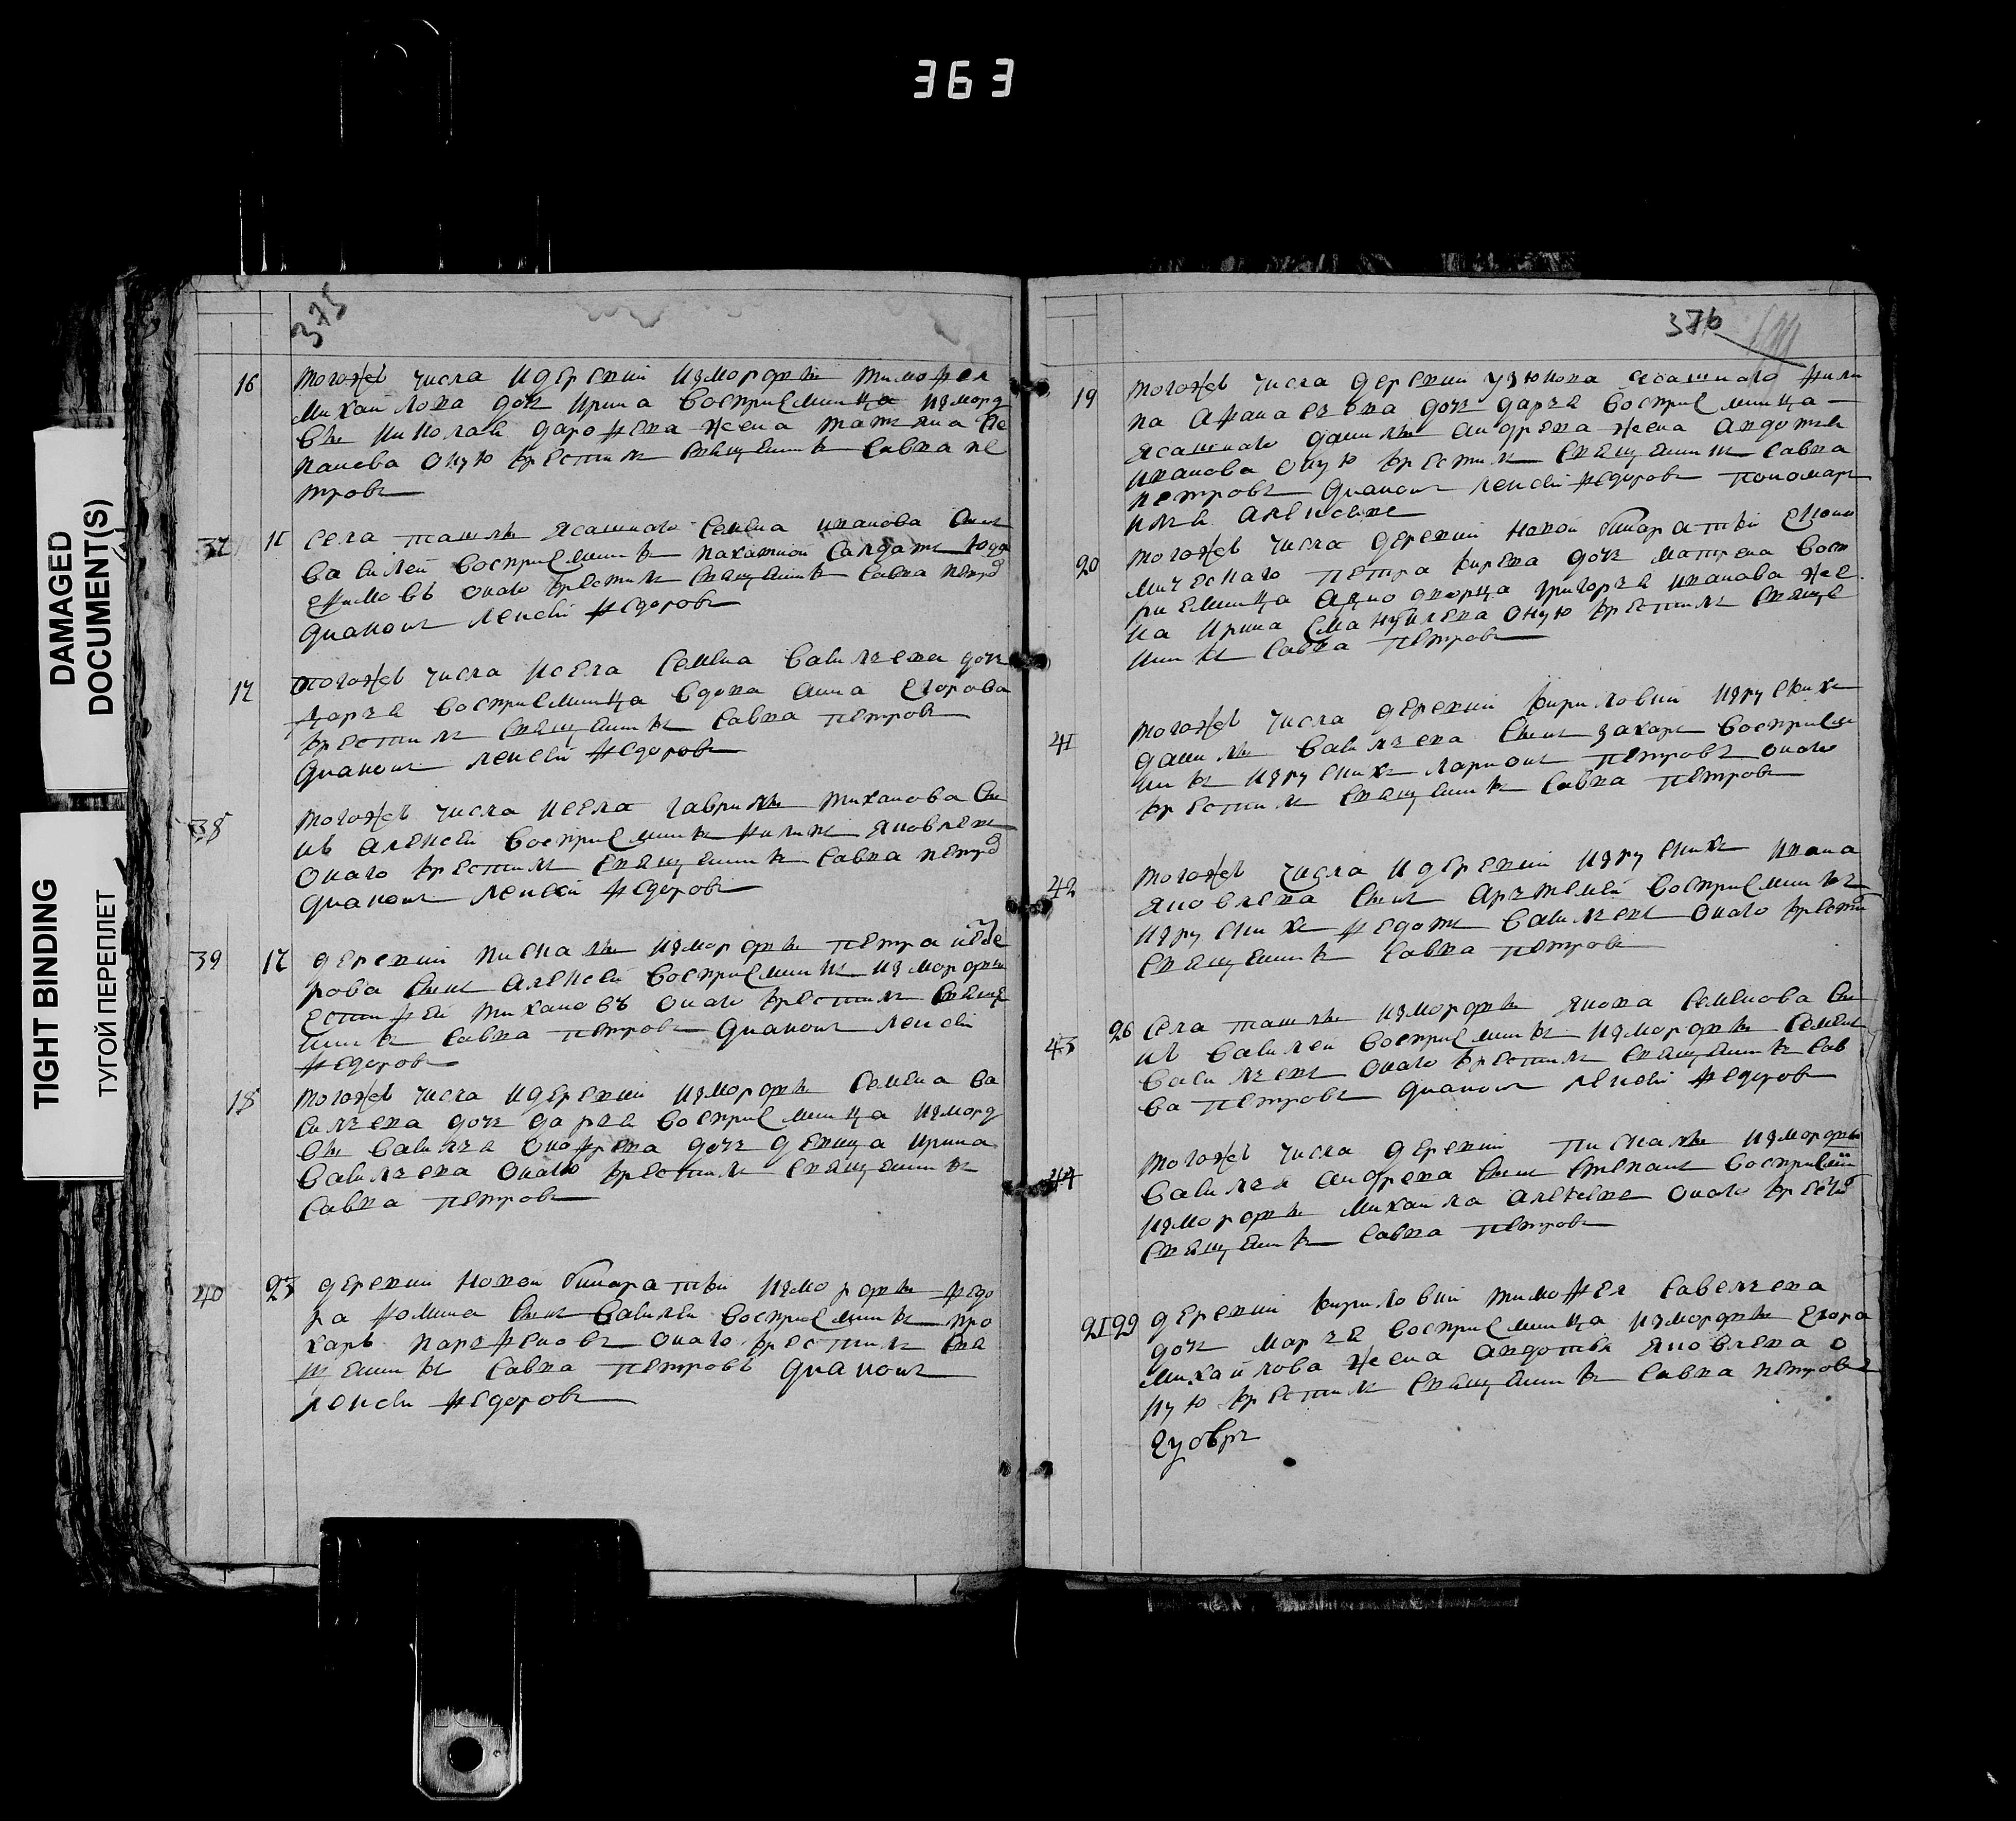 363
DAMAGED
DOCUMENT(S)
TIGHT BINDING
ТУГОЙ ПЕРЕПЛЕТ
375
16 тогожъ числа идеревни измордвы тимофея
михаилова дочь ирина восприемница измord
вы николая дарофева жена татяна сте
панова оную крестилъ священникъ савва пе
тровъ
37 11 села ташлы ясашнаго семена иванова сынъ
василей восприемникъ пахатной салдатъ
ефимовъ онаго крестилъ священникъ савва петро
диаконъ леюей федоровъ
17 тогожъ числа исела семена васильева дочь
дарья восприемница вдова анна егорова
крестилъ священникъ савва петровъ
диаконъ федоровъ
38 тогожъ числа исела гаврилы тиханова сы
нъ алексей восприемникъ филипъ яковлевъ
онаго крестилъ священникъ савва петро
диаконъ федоровъ
39 17 деревни пискалы измордвы петра федо
рова сынъ алексей восприемникъ измордвы
естифей тихановъ онаго крестилъ священ
никъ савва петровъ диаконъ
федоровъ
18 тогожъ числа идеревни измордвы семена ва
сильева дочь дарья восприемница изморд
вы василья онофрева дочь девица ирина
васильева онаю крестилъ священникъ
савва петровъ
40 23 деревни новой бинаратки измордвы федо
ра фомина сынъ василей восприемникъ про
харъ парфеновъ онаго крестилъ свя
щенникъ савва петровъ диаконъ
федоровъ
376
19 тогожъ числа деревни узюкова ясашнаго фили
па афанасьева дочь дарья восприемница
ясашнаго данилы андрева жена авдотья
иванова оную крестилъ священникъ савва
петровъ диаконъ федоровъ пономарь
илья алексеевъ
20 тогожъ числа деревни новой бинаратки еконо
мическаго петра кирева дочь матрена восп
риемница аднодворца григорья иванова же
на ирина емануилева оную крестилъ свяще
нникъ савва петровъ
41 тогожъ числа деревни кириловки изрускихъ
данилы васильева сынъ захаръ восприем
никъ изрускихъ ларионъ петровъ онаго
крестилъ священникъ савва петровъ
42 тогожъ числа идеревни изрускихъ ивана
яковлева сынъ арьтемей восприемникъ
изрускихъ федотъ васильевъ онаго крестил
священникъ савва петровъ
43 26 села ташлы измордвы якова семенова сы
нъ василей восприемникъ измордвы семенъ
васильевъ онаго крестилъ священникъ сав
ва петровъ диаконъ федоровъ
44 тогожъ числа деревни пискалы измордвы
василья андрева сынъ степанъ восприемни
измордвы михаила алексеевъ онаго крестил
священникъ савва петровъ
21 29 деревни кириловки тимофея савельева
дочь марья восприемница измордвы егора
михайлова жена авдотья яковлева о
ную крестилъ священникъ савва петровъ